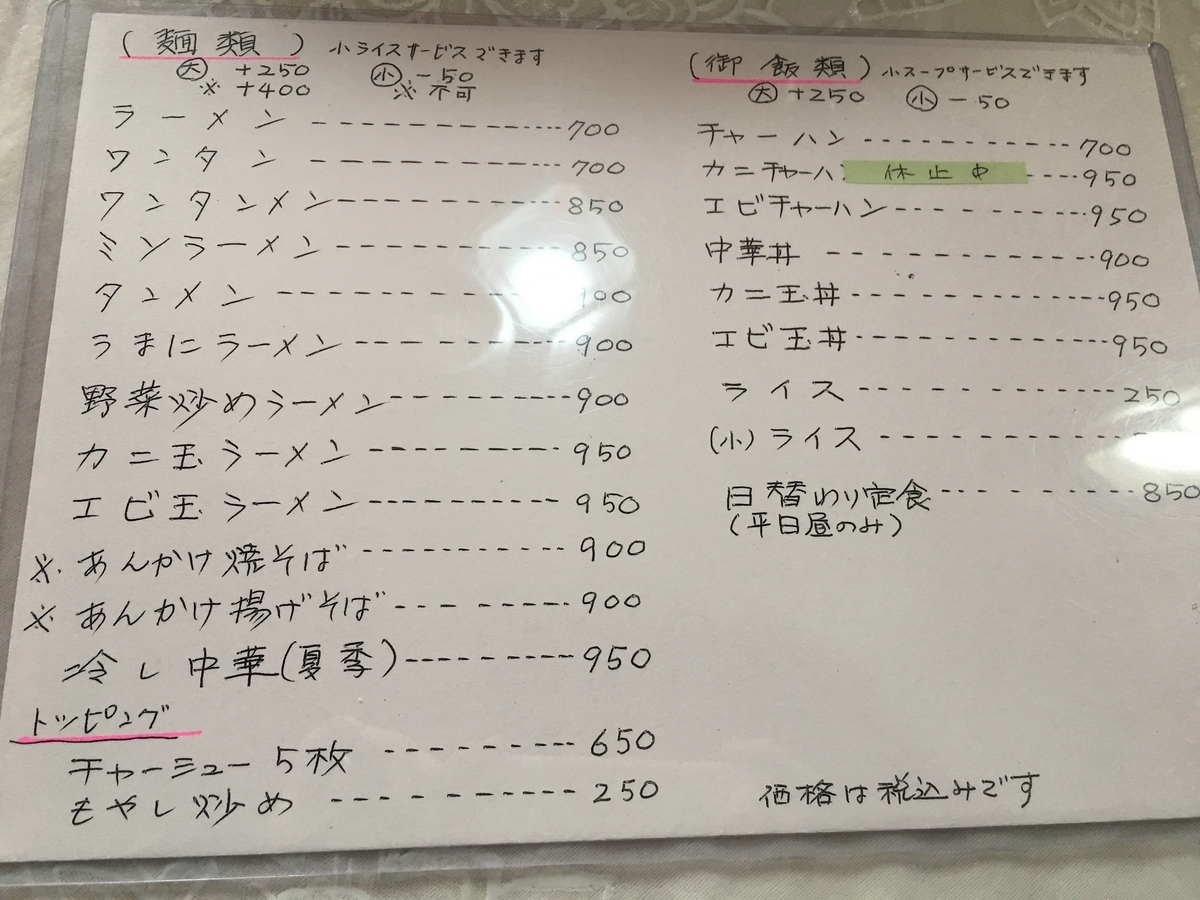 (麺類) 小ライスサービスできます
大 +250 小 -50
※ +400 ※ 不可
ラーメン 700
ワンタン 700
ワンタンメン 850
ミソラーメン 850
タンメン
うまにラーメン 900
野菜炒めラーメン 900
カニ玉ラーメン 950
エビ玉ラーメン 950
※ あんかけ焼そば 900
※ あんかけ揚げそば 900
冷し中華(夏季) 950
トッピング
チャーシュー 5枚 650
もやし炒め 250
(御飯類) 小スープサービスできます
大 +250 小 -50
チャーハン 700
カニチャーハ 休止中 950
エビチャーハン 950
中華丼 900
カニ玉丼 950
エビ玉丼 950
ライス 250
(小)ライス
日替わり定食 850
(平日昼のみ)
価格は税込みです